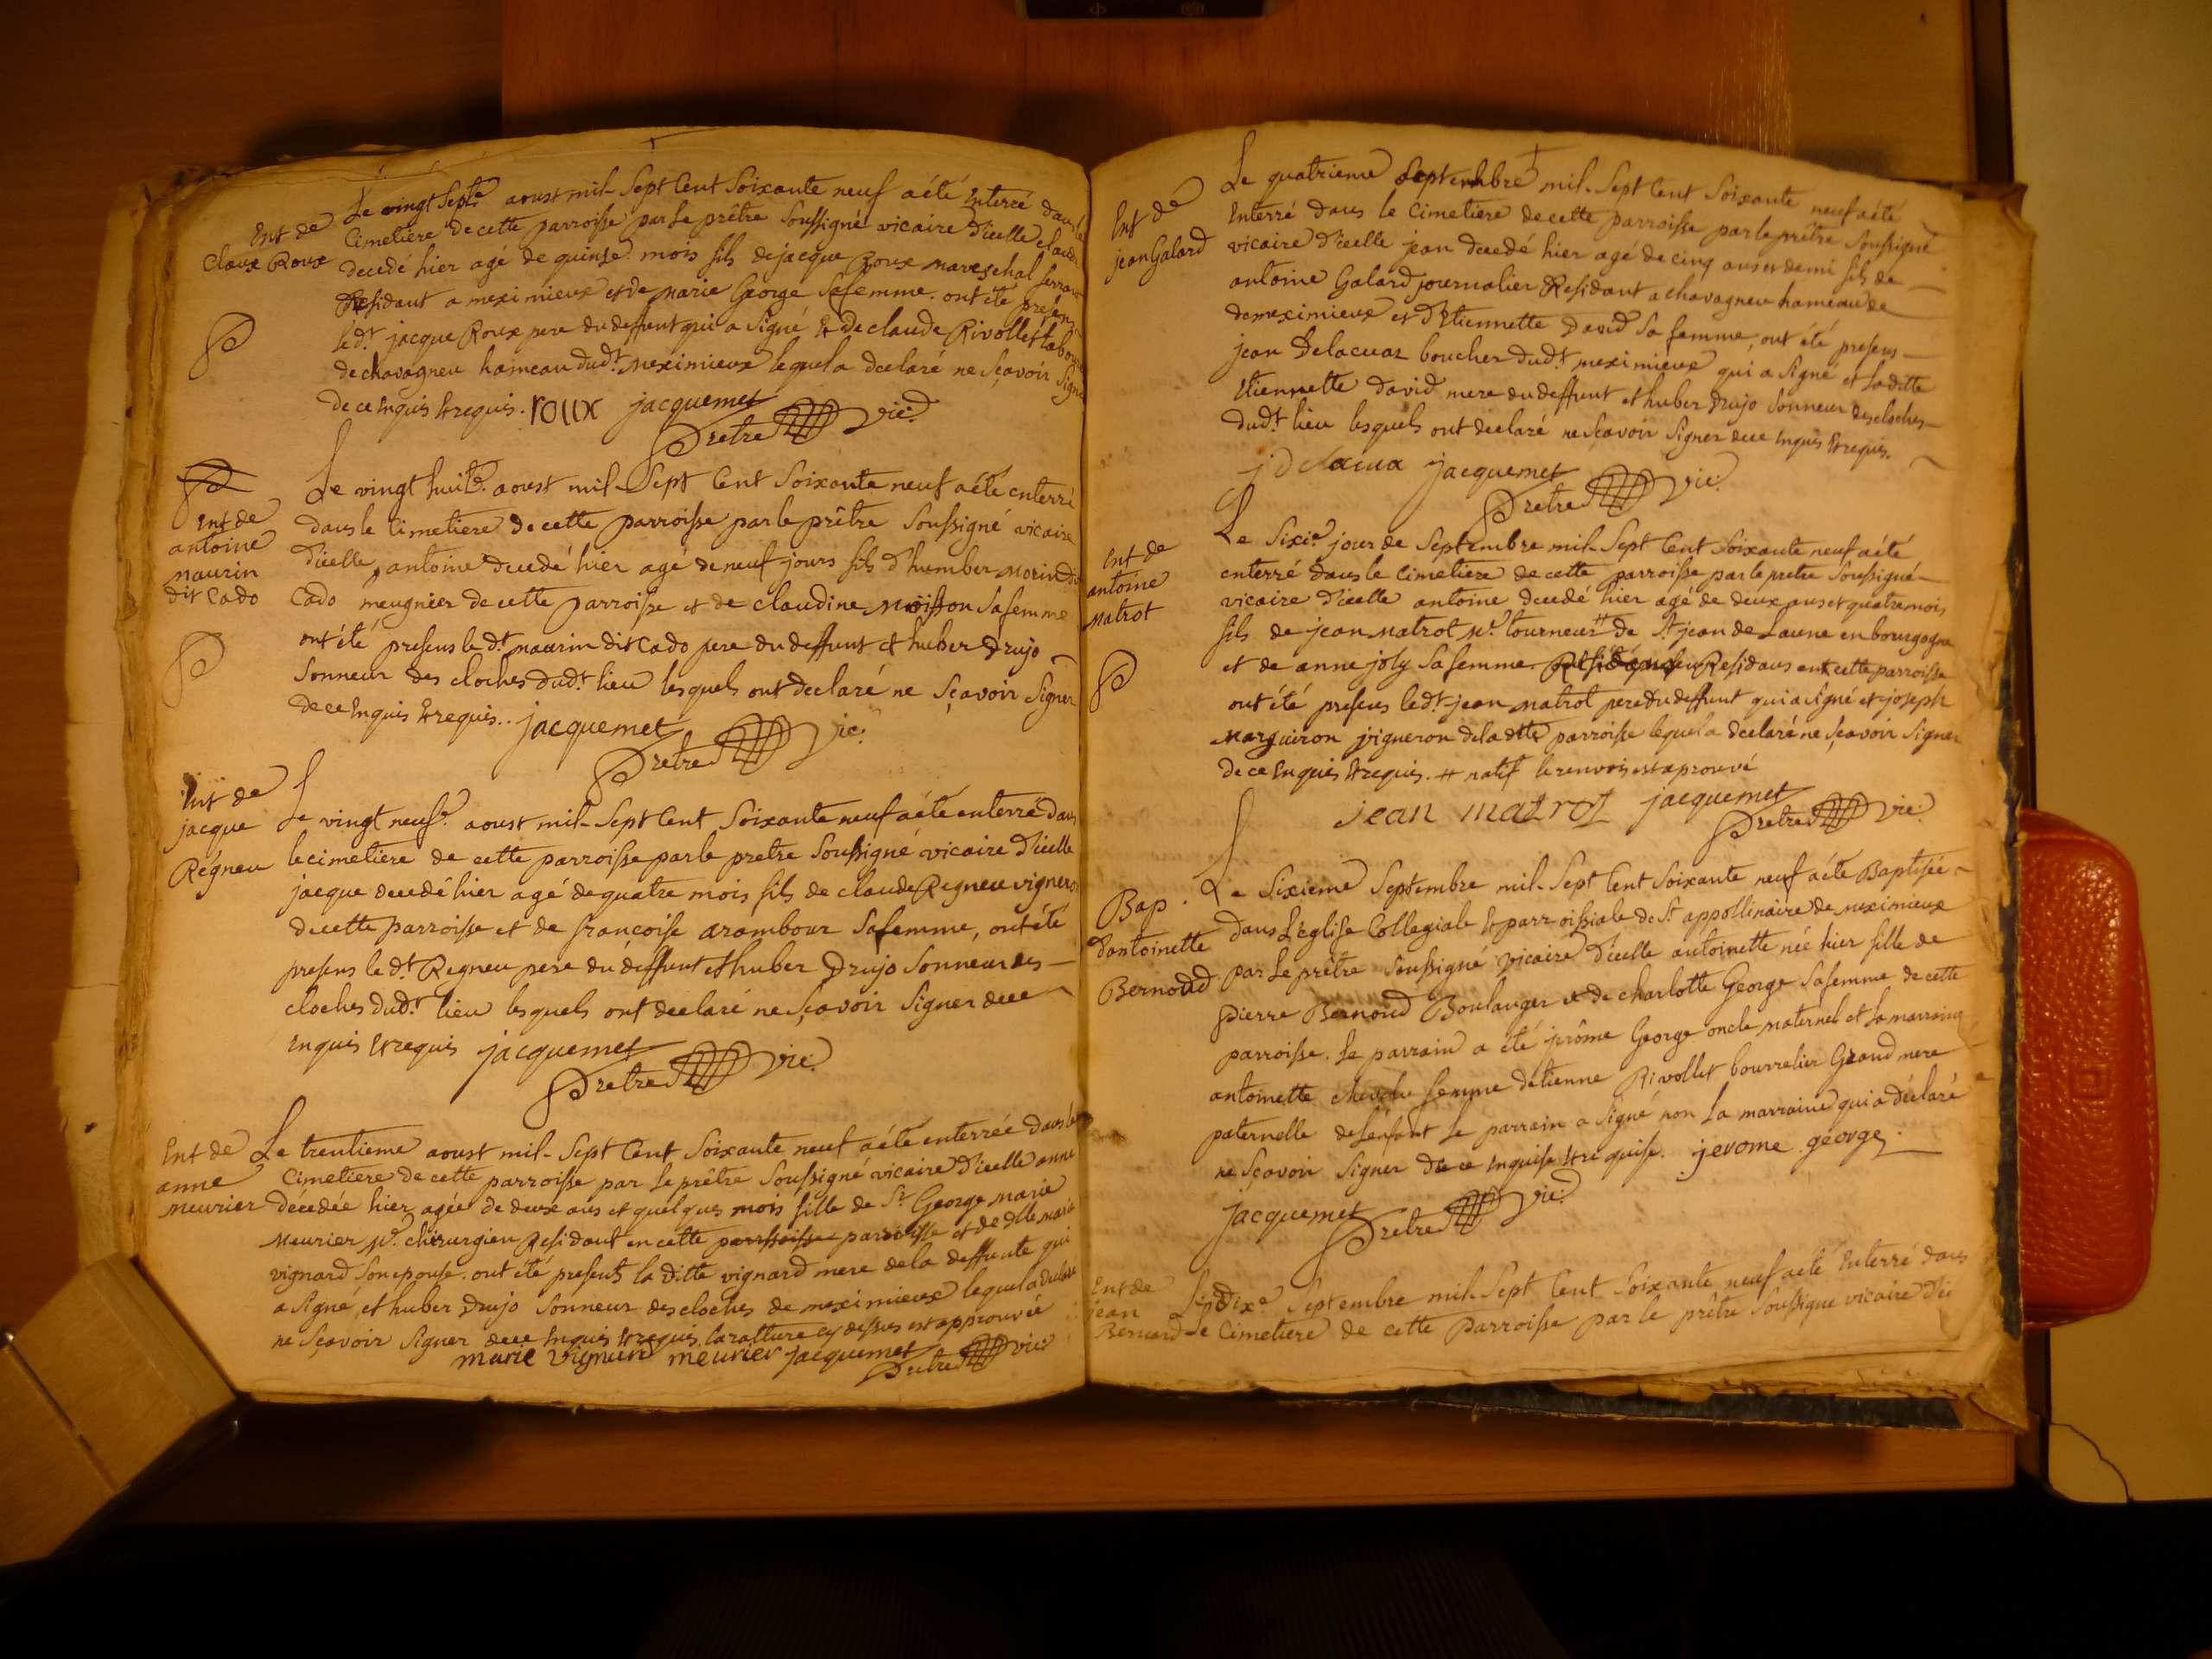 Ent de
Claux Roux
Le vingt Septe aoust mil Sept Cent Soixante neuf a été Enterré dans le
Cimetiere de cette parroisse par Le prêtre Soussigné vicaire d'icelle claude
decedé hier agé de quinse mois fils de jacque Roux mareschal ferrant
Residant a meximieux et de Marie George Sa femme. ont été presens
led.t jacque Roux pere du deffunt qui a Signé & de claude Rivollet
de chavagneu hameau dud.t Meximieux lequel a declaré ne Sçavoir Signer
de ce Enquis & requis. roux jacquemet
Pretre vic.
Ent de
antoine
Maurin
dit Cado
Le vingt huite. aoust mil-Sept Cent Soixante neuf a été enterré
dans le Cimetiere de cette parroisse par le prêtre Soussigné vicaire
d'icelle, antoine decedé hier agé de neuf jours fils d'humber Morin dit
Cado meugnier de cette parroisse et de claudine Moisson Sa femme
ont été presens le d.t maurin dit Cado pere du deffunt et huber Drujo
Sonneur des cloches dud.t lieu lesquels ont declaré ne Sçavoir Signer
de ce Enquis & requis.. jacquemet
Pretre vic.
Ent de
jacque
Régneu
Le vingt neufe. aoust mil-Sept Cent Soixante neuf a été enterré dans
le cimetiere de cette parroisse par le pretre Soussigné vicaire d'icelle
jacque decedé hier agé de quatre mois fils de claude Regneu vigneron
de cette parroisse et de françoise arambour Sa femme, ont été
presens le d.t Regneu pere du deffunt et huber Drujo Sonneur des
cloches dud.t lieu lesquels ont declaré ne Sçavoir Signer de ce
Enquis & requis jacquemet
Pretre vic.
Ent de
anne
Meurier
Le trentieme aoust mil-Sept Cent Soixante neuf a été enterrée dans le
Cimetiere de cette parroisse par Le prêtre Soussigné vicaire d'icelle anne
décedée hier agée de deux ans et quelques mois fille de S.r George Marie
Meurier M.e chirurgien Residant en cette parroisse et de dlle Marie
vignard Son epouse. ont été presents la ditte vignard mere de la deffunte qui
a Signé, et huber Drujo Sonneur des cloches de meximieux lequel a declaré
ne Sçavoir Signer de ce Enquis & requis la rature cy dessus est approuvée
marie vignard meurier jacquemet
Pretre vic.
Ent de
jean Galard
Le quatrieme Septembre mil-Sept Cent Soixante neuf a été
Enterré dans le Cimetiere de cette parroisse par le prêtre Soussigné
vicaire d'icelle jean decedé hier agé de cinq ans et demi fils de
antoine Galard journalier Residant a chavagneu hameau de
de meximieux et d'Etiennette David Sa femme, ont été presens
jean Delacuaz boucher dud.t meximieux qui a Signé et Laditte
Etiennette David mere du deffunt et huber Drujo Sonneur des cloches
dud.t lieu lesquels ont declaré ne Sçavoir Signer de ce Enquis & requis.
jacquemet
Pretre vic.
Ent de
antoine
Matrot
Le Sixie. jour de Septembre mil-Sept Cent Soixante neuf a été
enterré dans le Cimetiere de cette parroisse par le pretre Soussigné
vicaire d'icelle antoine decedé hier agé de deux ans et quatre mois
fils de jean Matrot M.e tourneur # de S.t jean de Laune en bourgogne
et de anne joly Sa femme Residans en cette parroisse
ont été presens led.t jean Matrot pere du deffunt qui a Signé et joseph
Marguiron vigneron de la dtte parroisse lequel a declaré ne Sçavoir Signer
de ce Enquis & requis. # natif le renvois est aprouvé
jean matrot jacquemet
Pretre vic.
Bap.
d'antoinette
Bernoud
Le Sixieme Septembre mil-Sept Cent Soixante neuf a été Baptisée
dans L'église Collegiale & parroissiale de S.t appollinaire de meximieux
par Le prêtre Soussigné vicaire d'icelle antoinette née hier fille de
Pierre Bernoud Boulanger et de charlotte George Sa femme de cette
parroisse. Le parrain a été jerôme George oncle maternel et La marraine
antoinette femme d'etienne Rivollet bourrelier Grand mere
paternelle de L'enfant Le parrain a Signé non La marraine qui a déclaré
ne Sçavoir Signer de ce Enquise & requise. jerome george
jacquemet
Pretre vic.
Ent de
jean
Bernard
Le dixe. Septembre mil-Sept Cent Soixante neuf a été Enterré dans
Le Cimetiere de cette Parroisse par le prêtre Soussigné vicaire d'i